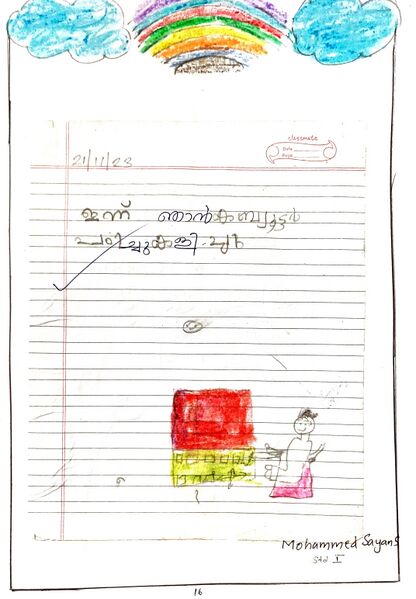 classmate
Date
Page
21/11/23
ഇന്ന് ഞാൻ കമ്പ്യൂട്ടർ
പഠിച്ചു കളിച്ചു
Mohammed Sayan S
Std I
16